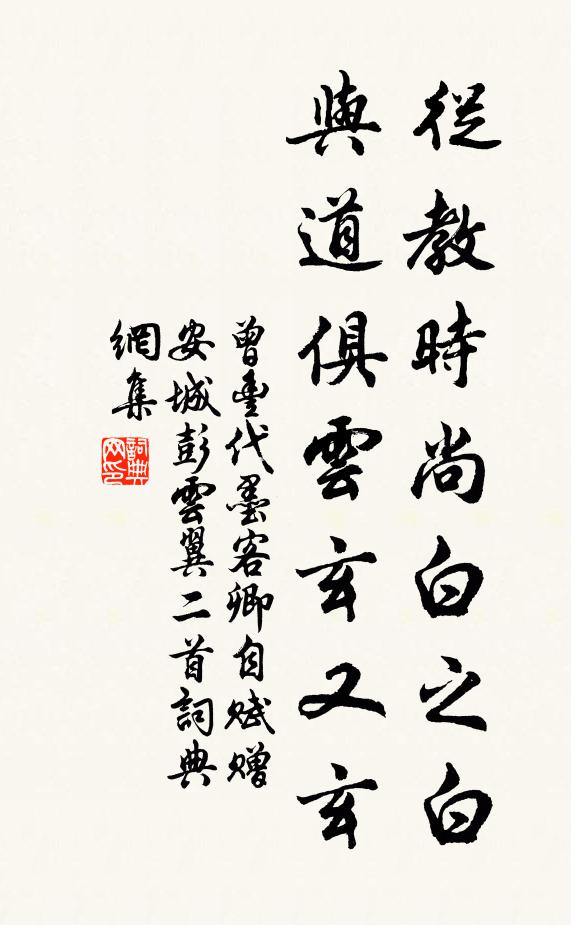 從教時尚白之白
與道俱雲玄又玄
曾豊代墨客卿自賦贈
安城彭雲翼二首詞典
網集
詞典
网印